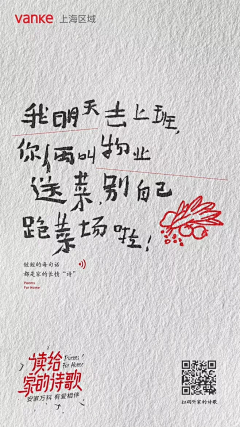 vanke 上海区域
我明天去上班,
你俩叫物业
送菜,别自己
跑菜场啦!
都是家的长情“诗”
Poems
For Home
读给
家的诗歌
Poems
For Home
安家万科 有爱相伴
扫码听家的诗歌